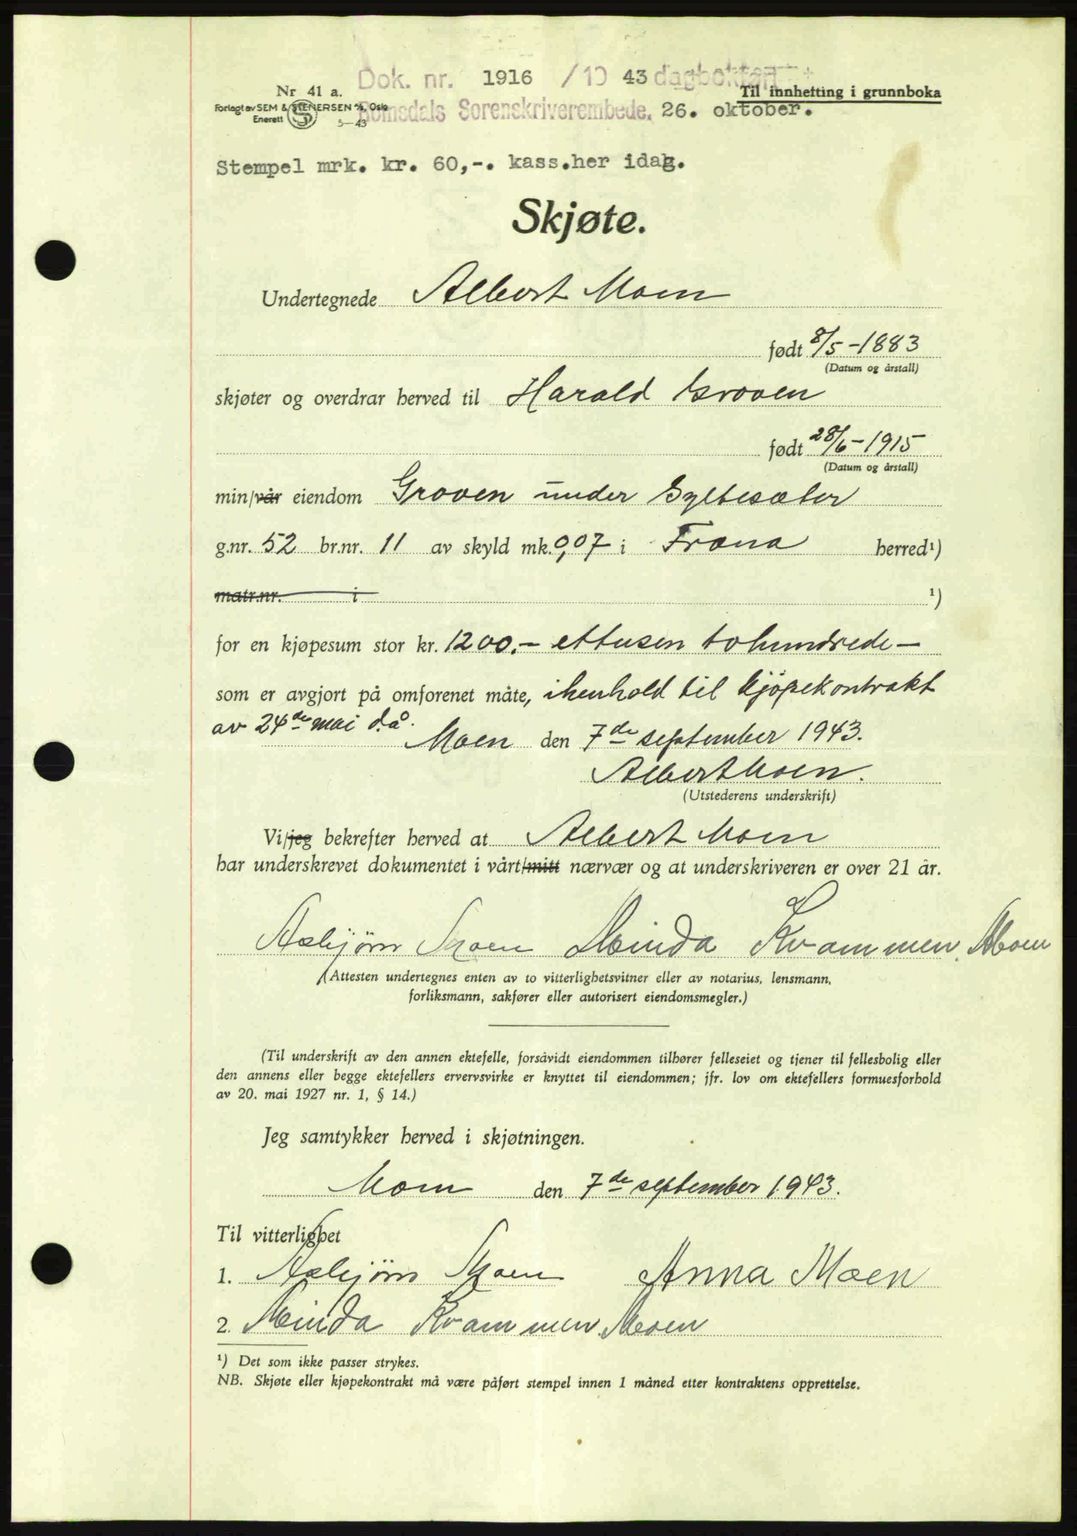 Dok. nr. 1916 /19 43 dagbokført
Nr 41 a.
Til innhefting i grunnboka
Forlagt av SEM & STENERSEN A/S, Oslo
Enerett
5—43
Romsdals Sorenskriverembede, 26. oktober.
Stempel mrk. kr. 60,-. kass.her idag.
Skjøte.
Undertegnede Albert Moen
født 8/5-1883
(Datum og årstall)
skjøter og overdrar herved til Harald Groven
født 28/6-1915
(Datum og årstall)
min/vår eiendom Groven under Gyltesæter
g.nr. 52 br.nr. 11 av skyld mk. 0,07 i Fræna herred¹)
matr.nr. i ¹)
for en kjøpesum stor kr. 1200.- ettusen tohundrede-
som er avgjort på omforenet måte, i henhold til kjøpekontrakt
av 24de mai d.å.
Moen den 7de september 1943.
Albert Moen.
(Utstederens underskrift)
Vi/jeg bekrefter herved at Albert Moen
har underskrevet dokumentet i vårt/mitt nærvær og at underskriveren er over 21 år.
Asbjørn Moen Minda Kvammen Moen
(Attesten undertegnes enten av to vitterlighetsvitner eller av notarius, lensmann,
forliksmann, sakfører eller autorisert eiendomsmegler.)
(Til underskrift av den annen ektefelle, forsåvidt eiendommen tilhører felleseiet og tjener til fellesbolig eller
den annens eller begge ektefellers ervervsvirke er knyttet til eiendommen; jfr. lov om ektefellers formuesforhold
av 20. mai 1927 nr. 1, § 14.)
Jeg samtykker herved i skjøtningen.
Moen den 7de september 1943.
Til vitterlighet
1. Asbjørn Moen Anna Moen
2. Minda Kvammen Moen
¹) Det som ikke passer strykes.
NB. Skjøte eller kjøpekontrakt må være påført stempel innen 1 måned etter kontraktens opprettelse.